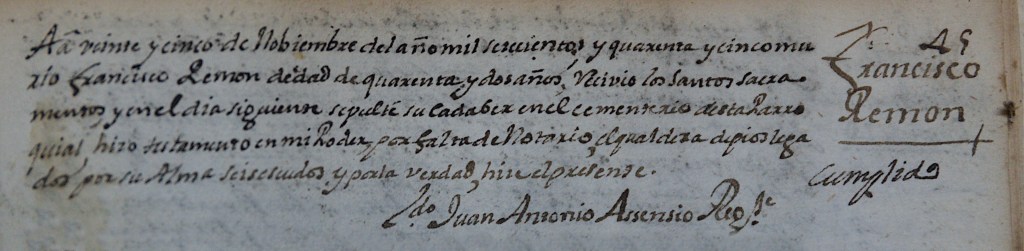 A veinte y cinco de Nobiembre del año mil setecientos y quarenta y cinco mu
rio Francisco Remon de edad de quarenta y dos años, Recivio los santos sacra
mentos y en el dia siguiente sepulté su Cadaber en el cementerio desta Parro
quial, hizo testamento en mi Poder, por falta de Notario, el qual dexa de pios lega
dos por su Alma seis escudos y por la verdad, hice el presente.
Ldo Juan Antonio Assensio
N. 45
Francisco
Remon
Cumplido